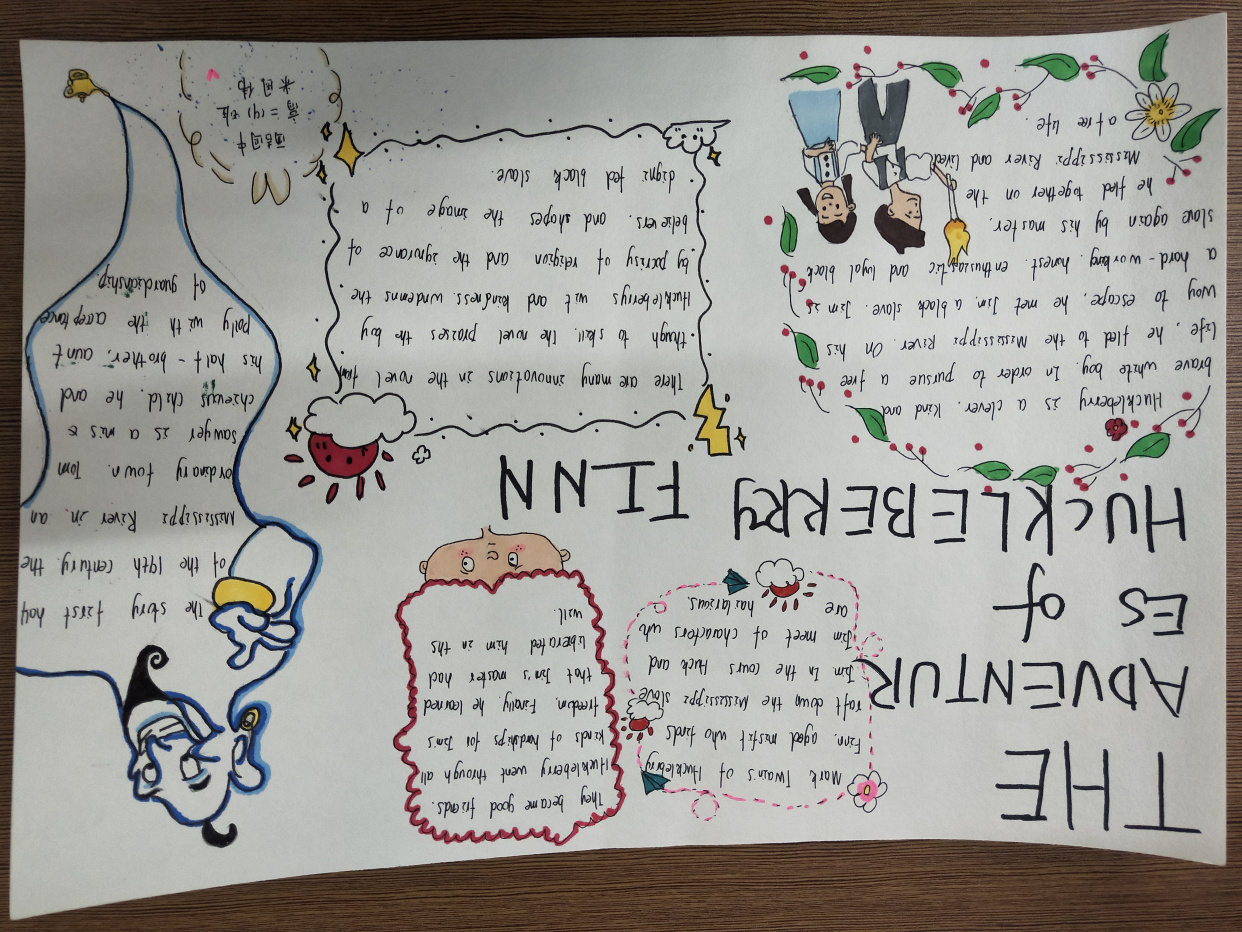 THE
ADVENTUR
ES of
HUCKLEBERRY FINN
Mark Twain's of Huckleberry
Finn. aged misfit who finds
raft down the Mississippi slave
Jim In the cours Huck and
Jim meet of characters wh
are hailarious.
They became good friends.
Huckleberry went through all
kinds of hardships for Jim's
freedom. Finally, he learned
that Jim's master had
liberated him in ths
will.
The story first half
of the 19th century. the
Mississippi River in. an
ordinary town. Tom
sawyer is a mis
chievous child. he and
his half-brother, aunt
polly with the acceptance
of guardianship
Huckleberry is a clever. kind and
brave white boy. In order to pursue a free
life, he fled to the Mississippi River. On his
way to escape, he met Jim. a black slave. Jim is
a hard-working. honest. enthusiastic and loyal black
slave again by his master.
he fled together on the
Mississippi River and lived
a free life.
There are many innovations in the novel from
though to skill. The novel praises the boy
Huckleberrys wit and kindness. condemns the
by pocrisy of religion and the ignorance of
believers. and shapes the image of a
digni fed black slave.
高二(4)班